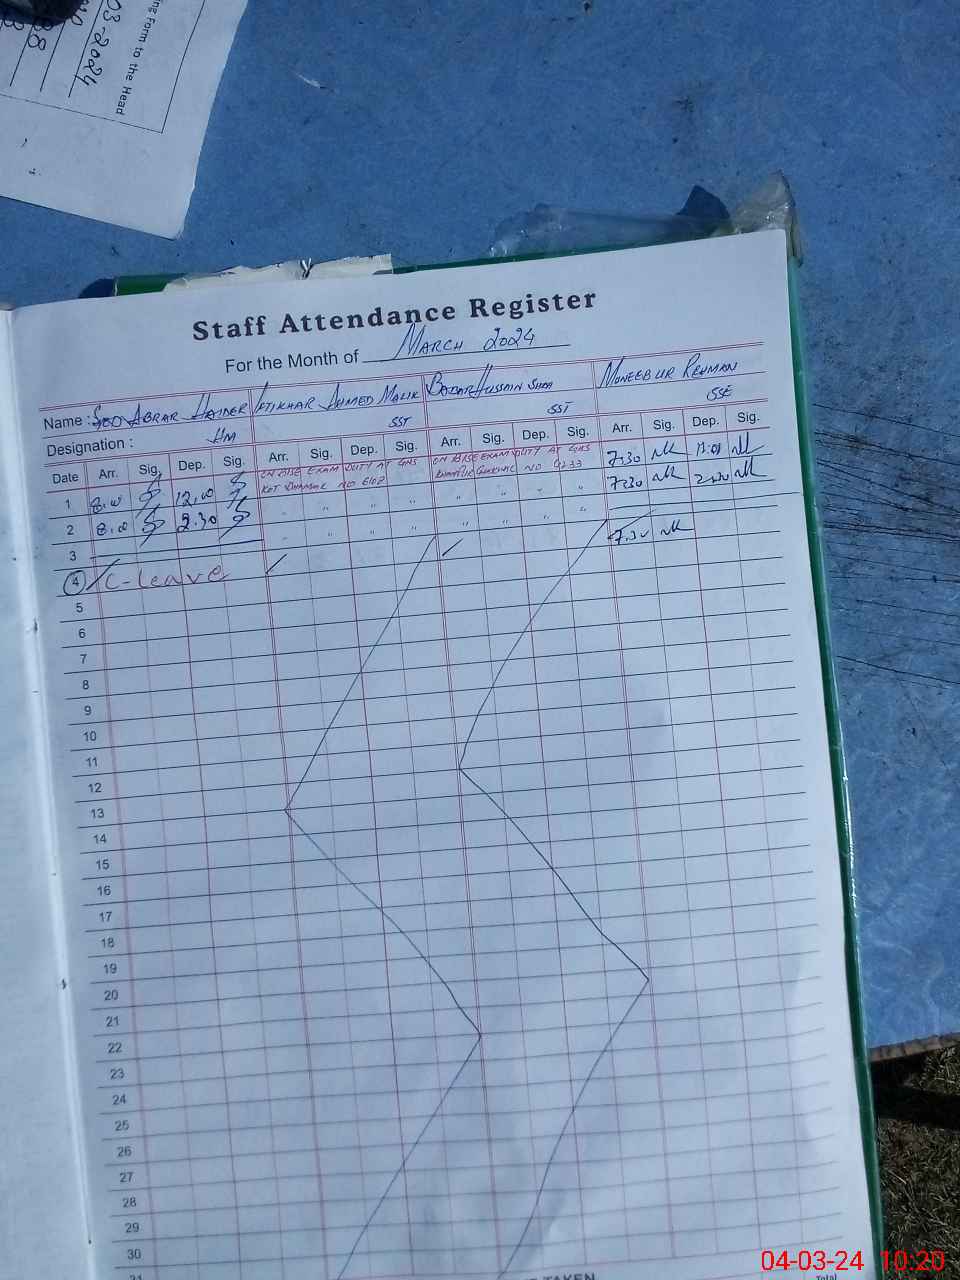 ing Form to the Head
03-2024
Staff Attendance Register
For the Month of MARCH 2024
Name : SYED ABRAR HAIDER IFTIKHAR AHMED MALIK BADAR HUSSAIN SHAH MONEEB UR REHMAN
Designation : HM SST SST SSE
Date Arr. Sig. Dep. Sig. Arr. Sig. Dep. Sig. Arr. Sig. Dep. Sig. Arr. Sig. Dep. Sig.
ON BISE EXAM DUTY AT GHS ON BISE EXAM DUTY AT GHS 7:30
1 8.00 12.00 KOT NO NO 7:30
2 8.00 2.30 " " " " " " " "
3 " " " " " " " " 7.30
4 C-leave
5
6
7
8
9
10
11
12
13
14
15
16
17
18
19
20
21
22
23
24
25
26
27
28
29
30
31
TAKEN Total
04-03-24 10:20